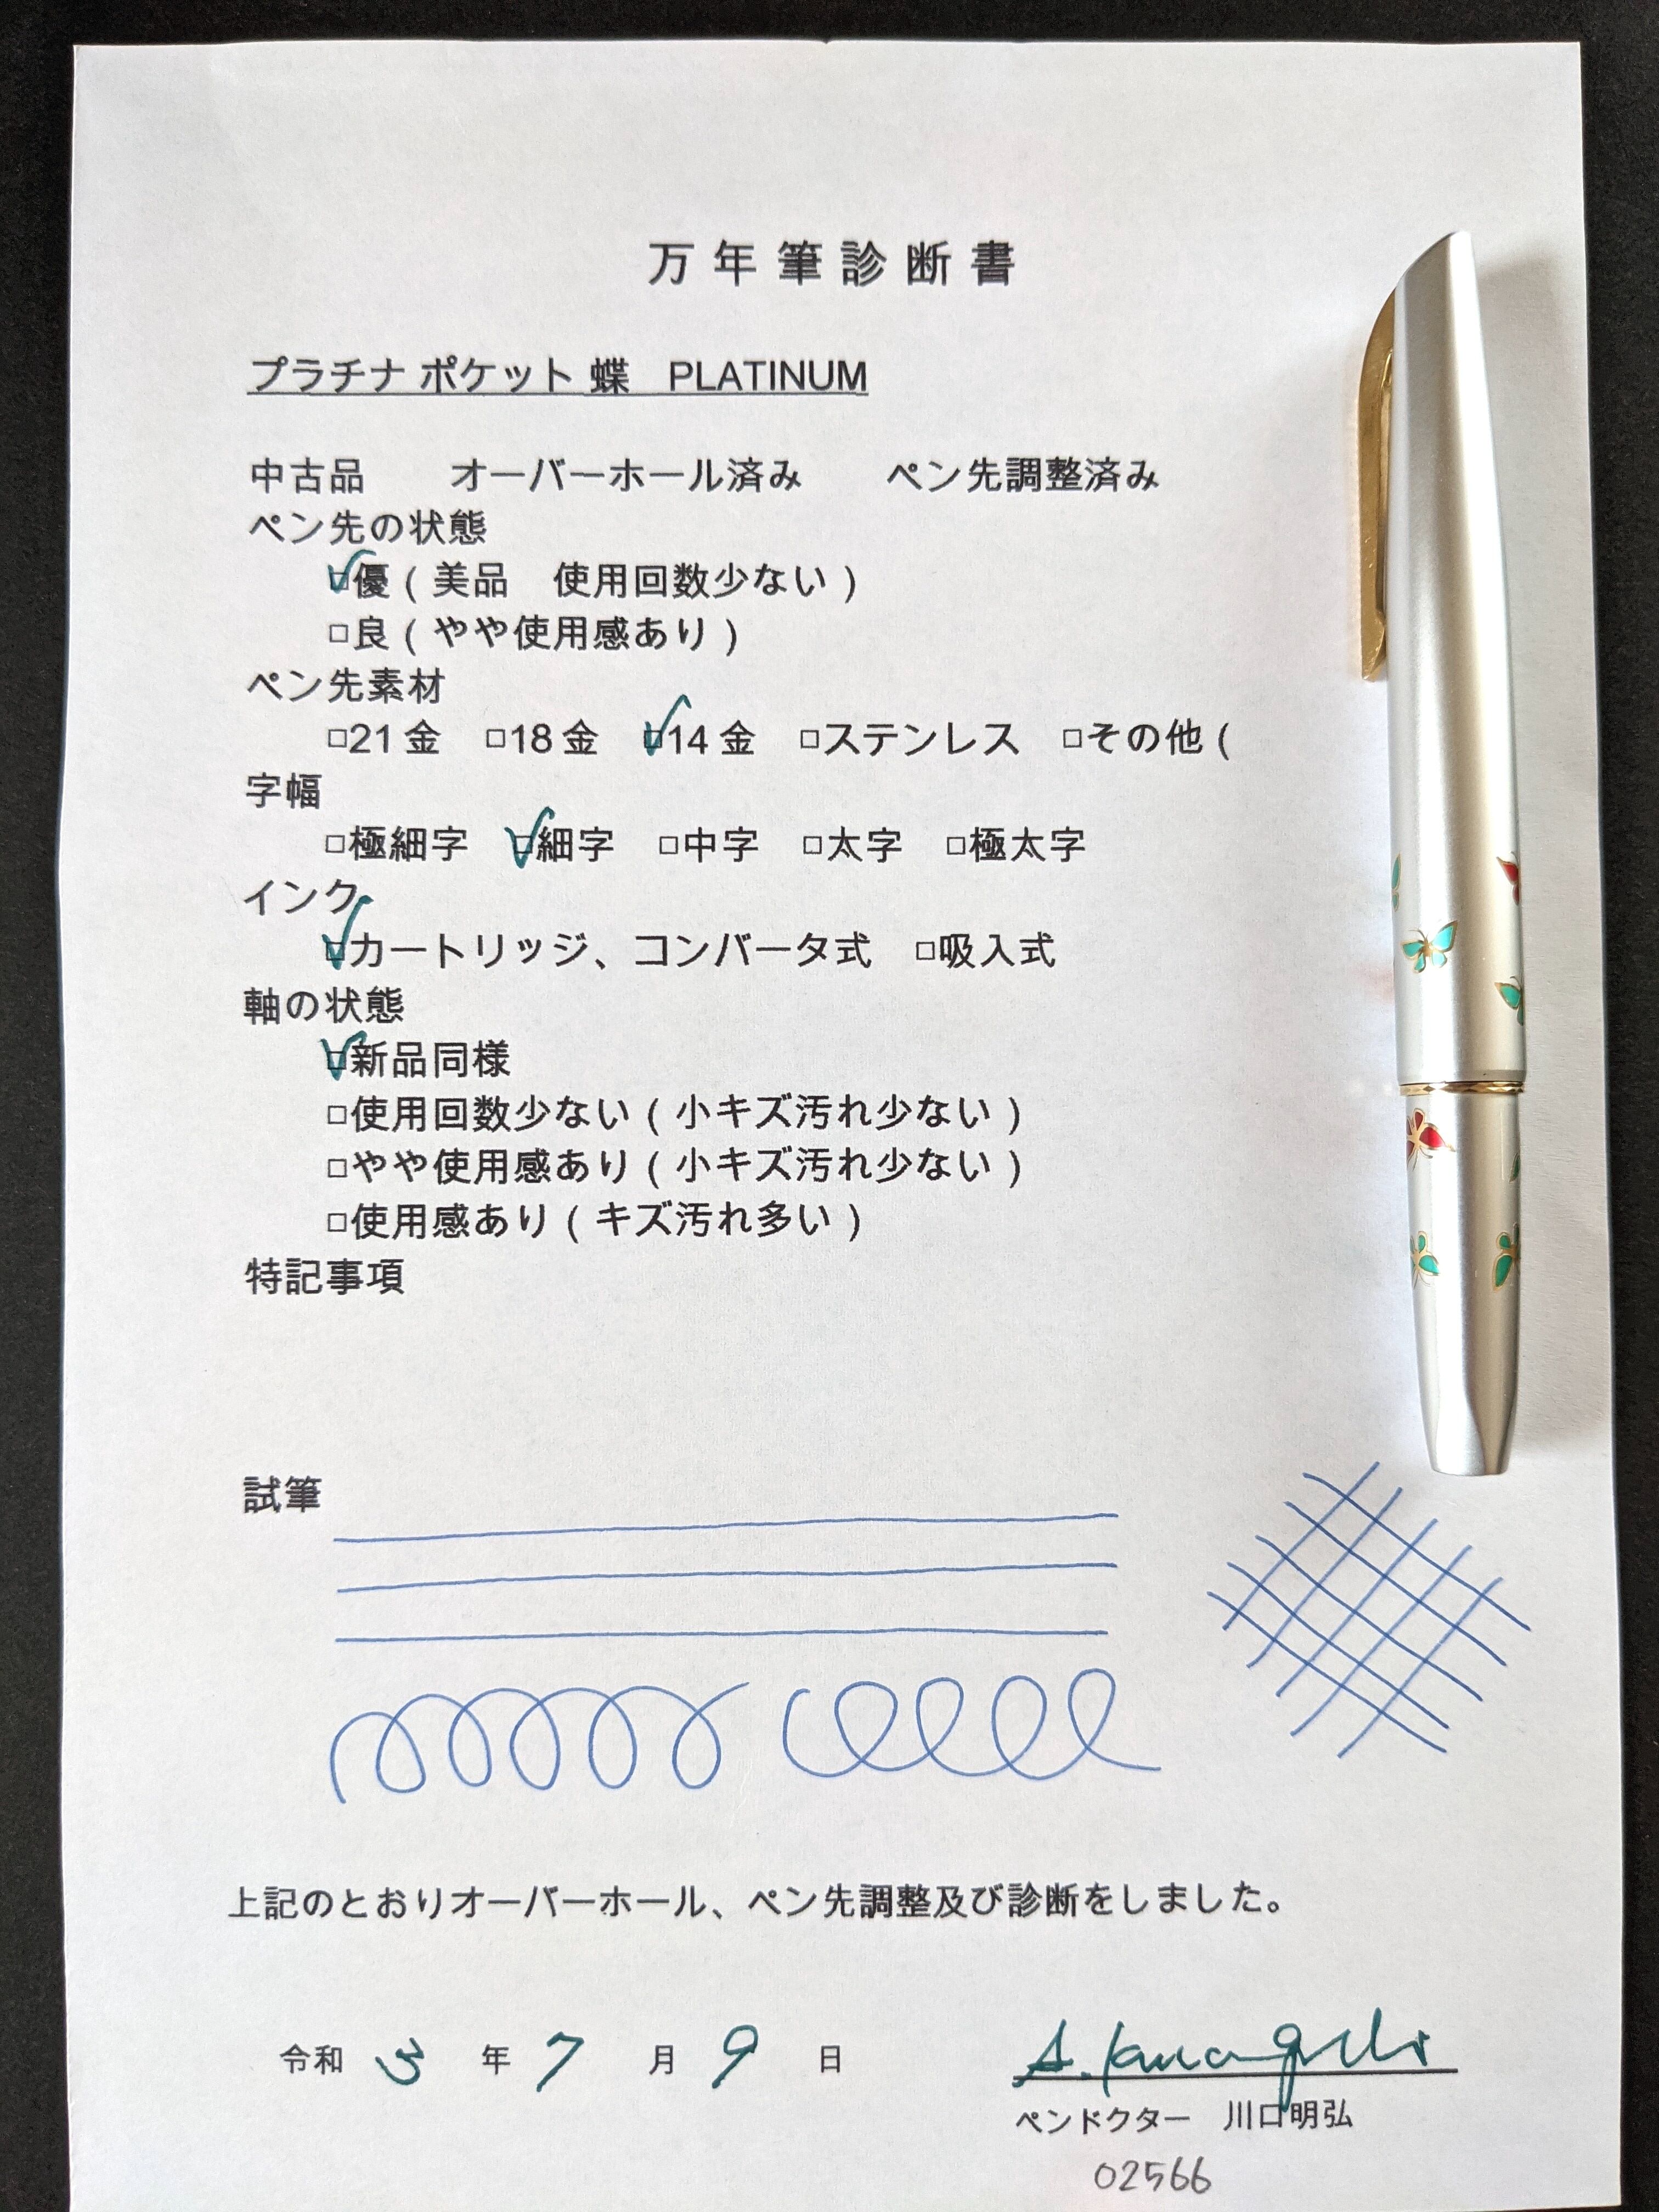 万年筆診断書
プラチナ ポケット 蝶　PLATINUM
中古品　　オーバーホール済み　　ペン先調整済み
ペン先の状態
☑優（美品　使用回数少ない）
□良（やや使用感あり）
ペン先素材
□21金　□18金　☑14金　□ステンレス　□その他（
字幅
□極細字　☑細字　□中字　□太字　□極太字
インク
☑カートリッジ、コンバータ式　□吸入式
軸の状態
☑新品同様
□使用回数少ない（小キズ汚れ少ない）
□やや使用感あり（小キズ汚れ少ない）
□使用感あり（キズ汚れ多い）
特記事項
試筆
上記のとおりオーバーホール、ペン先調整及び診断をしました。
令和 3 年 7 月 9 日
A. Kawaguchi
ペンドクター　川口明弘
02566